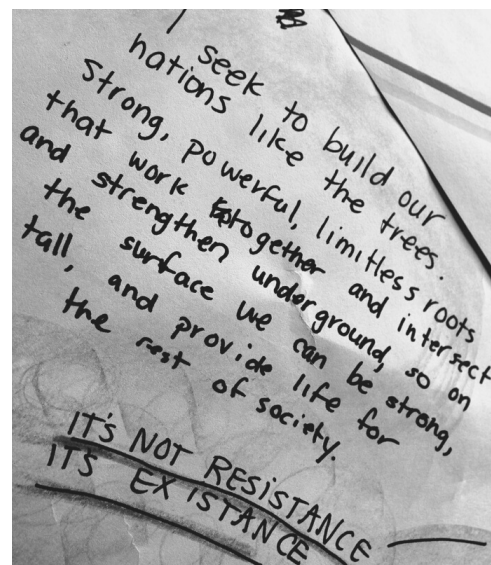 I seek to build our
nations like the trees.
Strong, powerful, limitless roots
that work together and intersect
and strengthen underground, so on
the surface we can be strong,
tall, and provide life for
the rest of society.
IT'S NOT RESISTANCE —
IT'S EXISTANCE